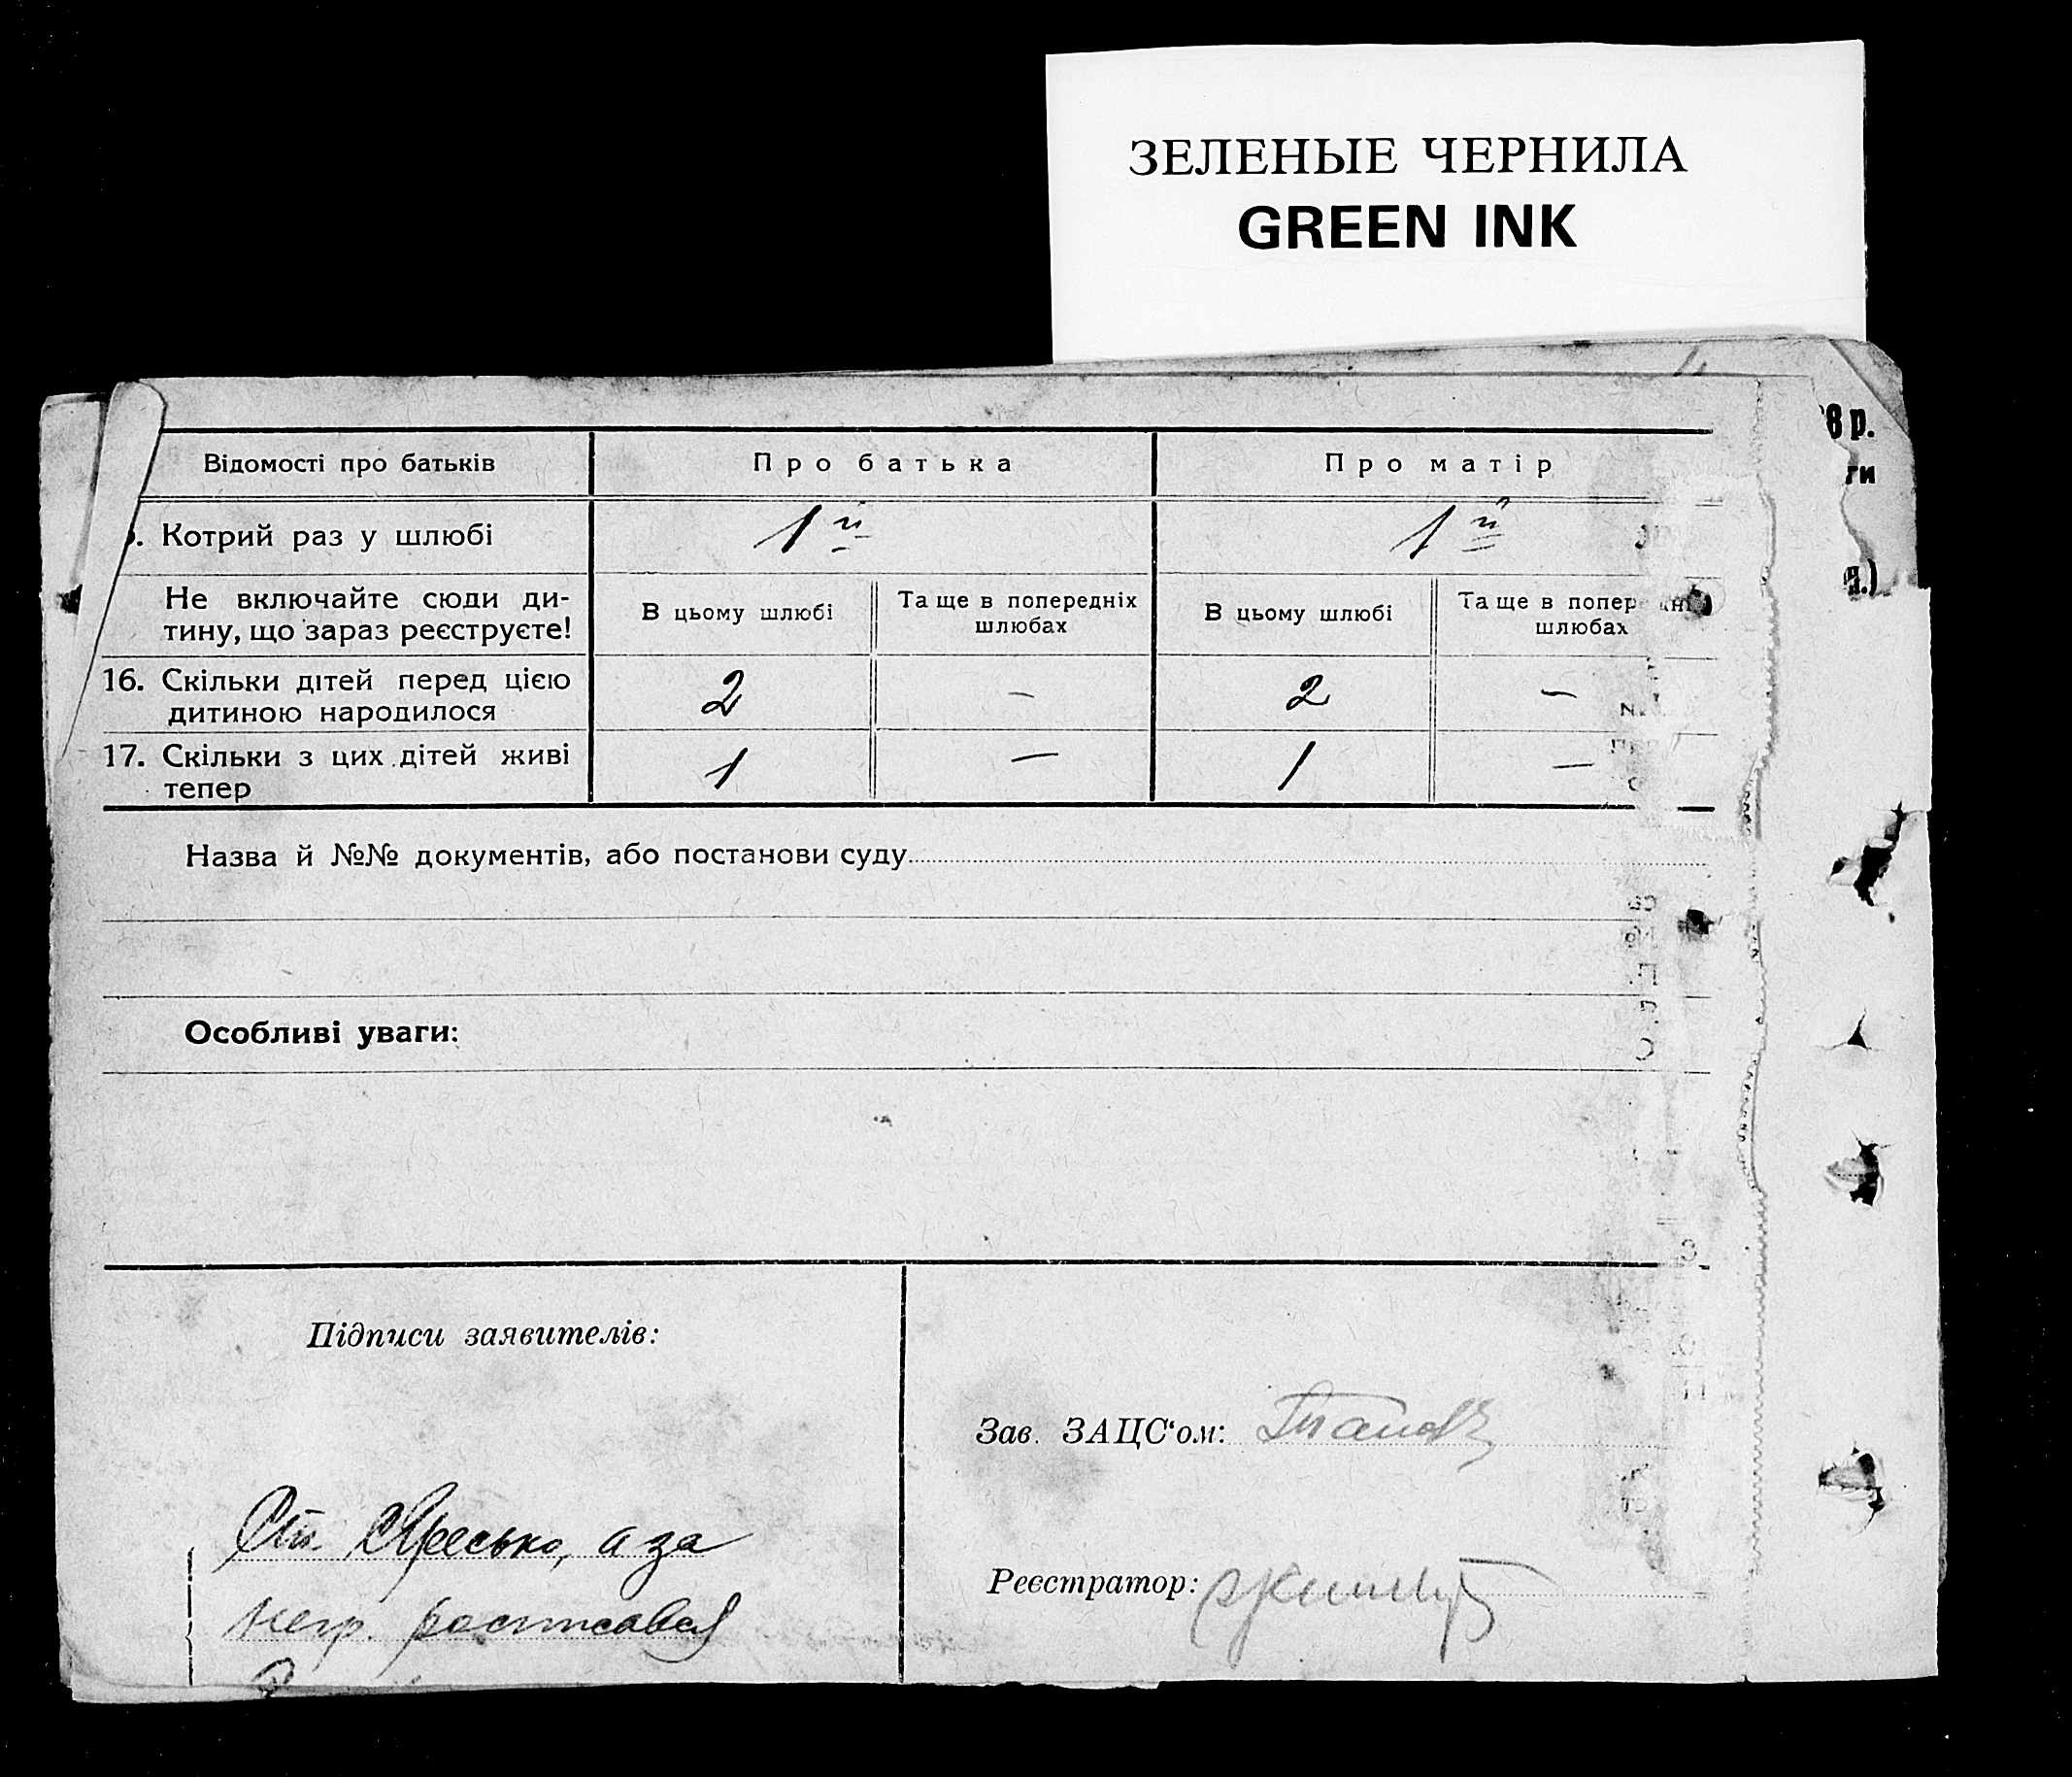 ЗЕЛЕНЫЕ ЧЕРНИЛА
GREEN INK
8 р.
ги
Відомості про батьків
Про батька
Про матір
Котрий раз у шлюбі
1й
1й
Не включайте сюди ди-
тину, що зараз реєструєте!
В цьому шлюбі
Та ще в попередніх
шлюбах
В цьому шлюбі
Та ще в попер
шлюбах
16. Скільки дітей перед цією
дитиною народилося
2
–
2
–
17. Скільки з цих дітей живі
тепер
1
–
1
–
Назва й №№ документів, або постанови суду
Особливі уваги:
Підписи заявителів:
Зав. ЗАЦС‘ом:
Яресько, а за
негр. росписався
Реєстратор: